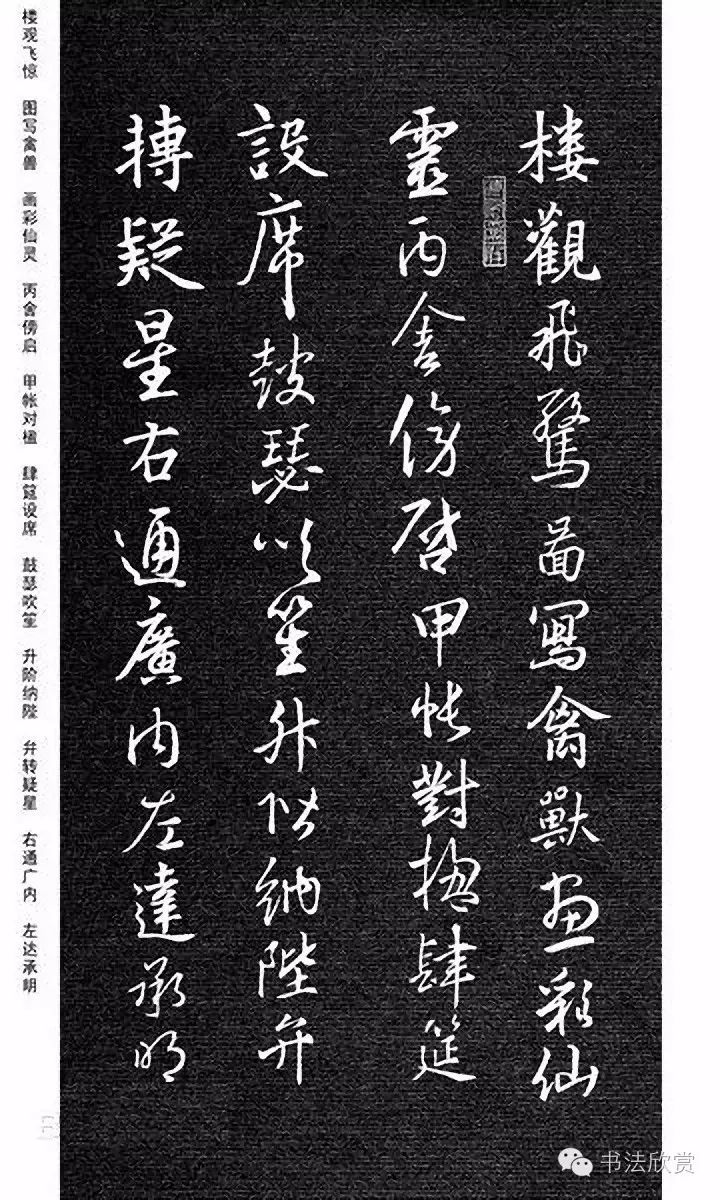 樓觀飛驚啚寫禽獸畫彩仙
靈丙舍傍啓甲帳對楹肆筵
設席鼓瑟吹笙升階納陛弁
轉疑星右通廣内左達承明
楼观飞惊 图写禽兽 画彩仙灵 丙舍傍启 甲帐对楹 肆筵设席 鼓瑟吹笙 升阶纳陛 弁转疑星 右通广内 左达承明
书法欣赏